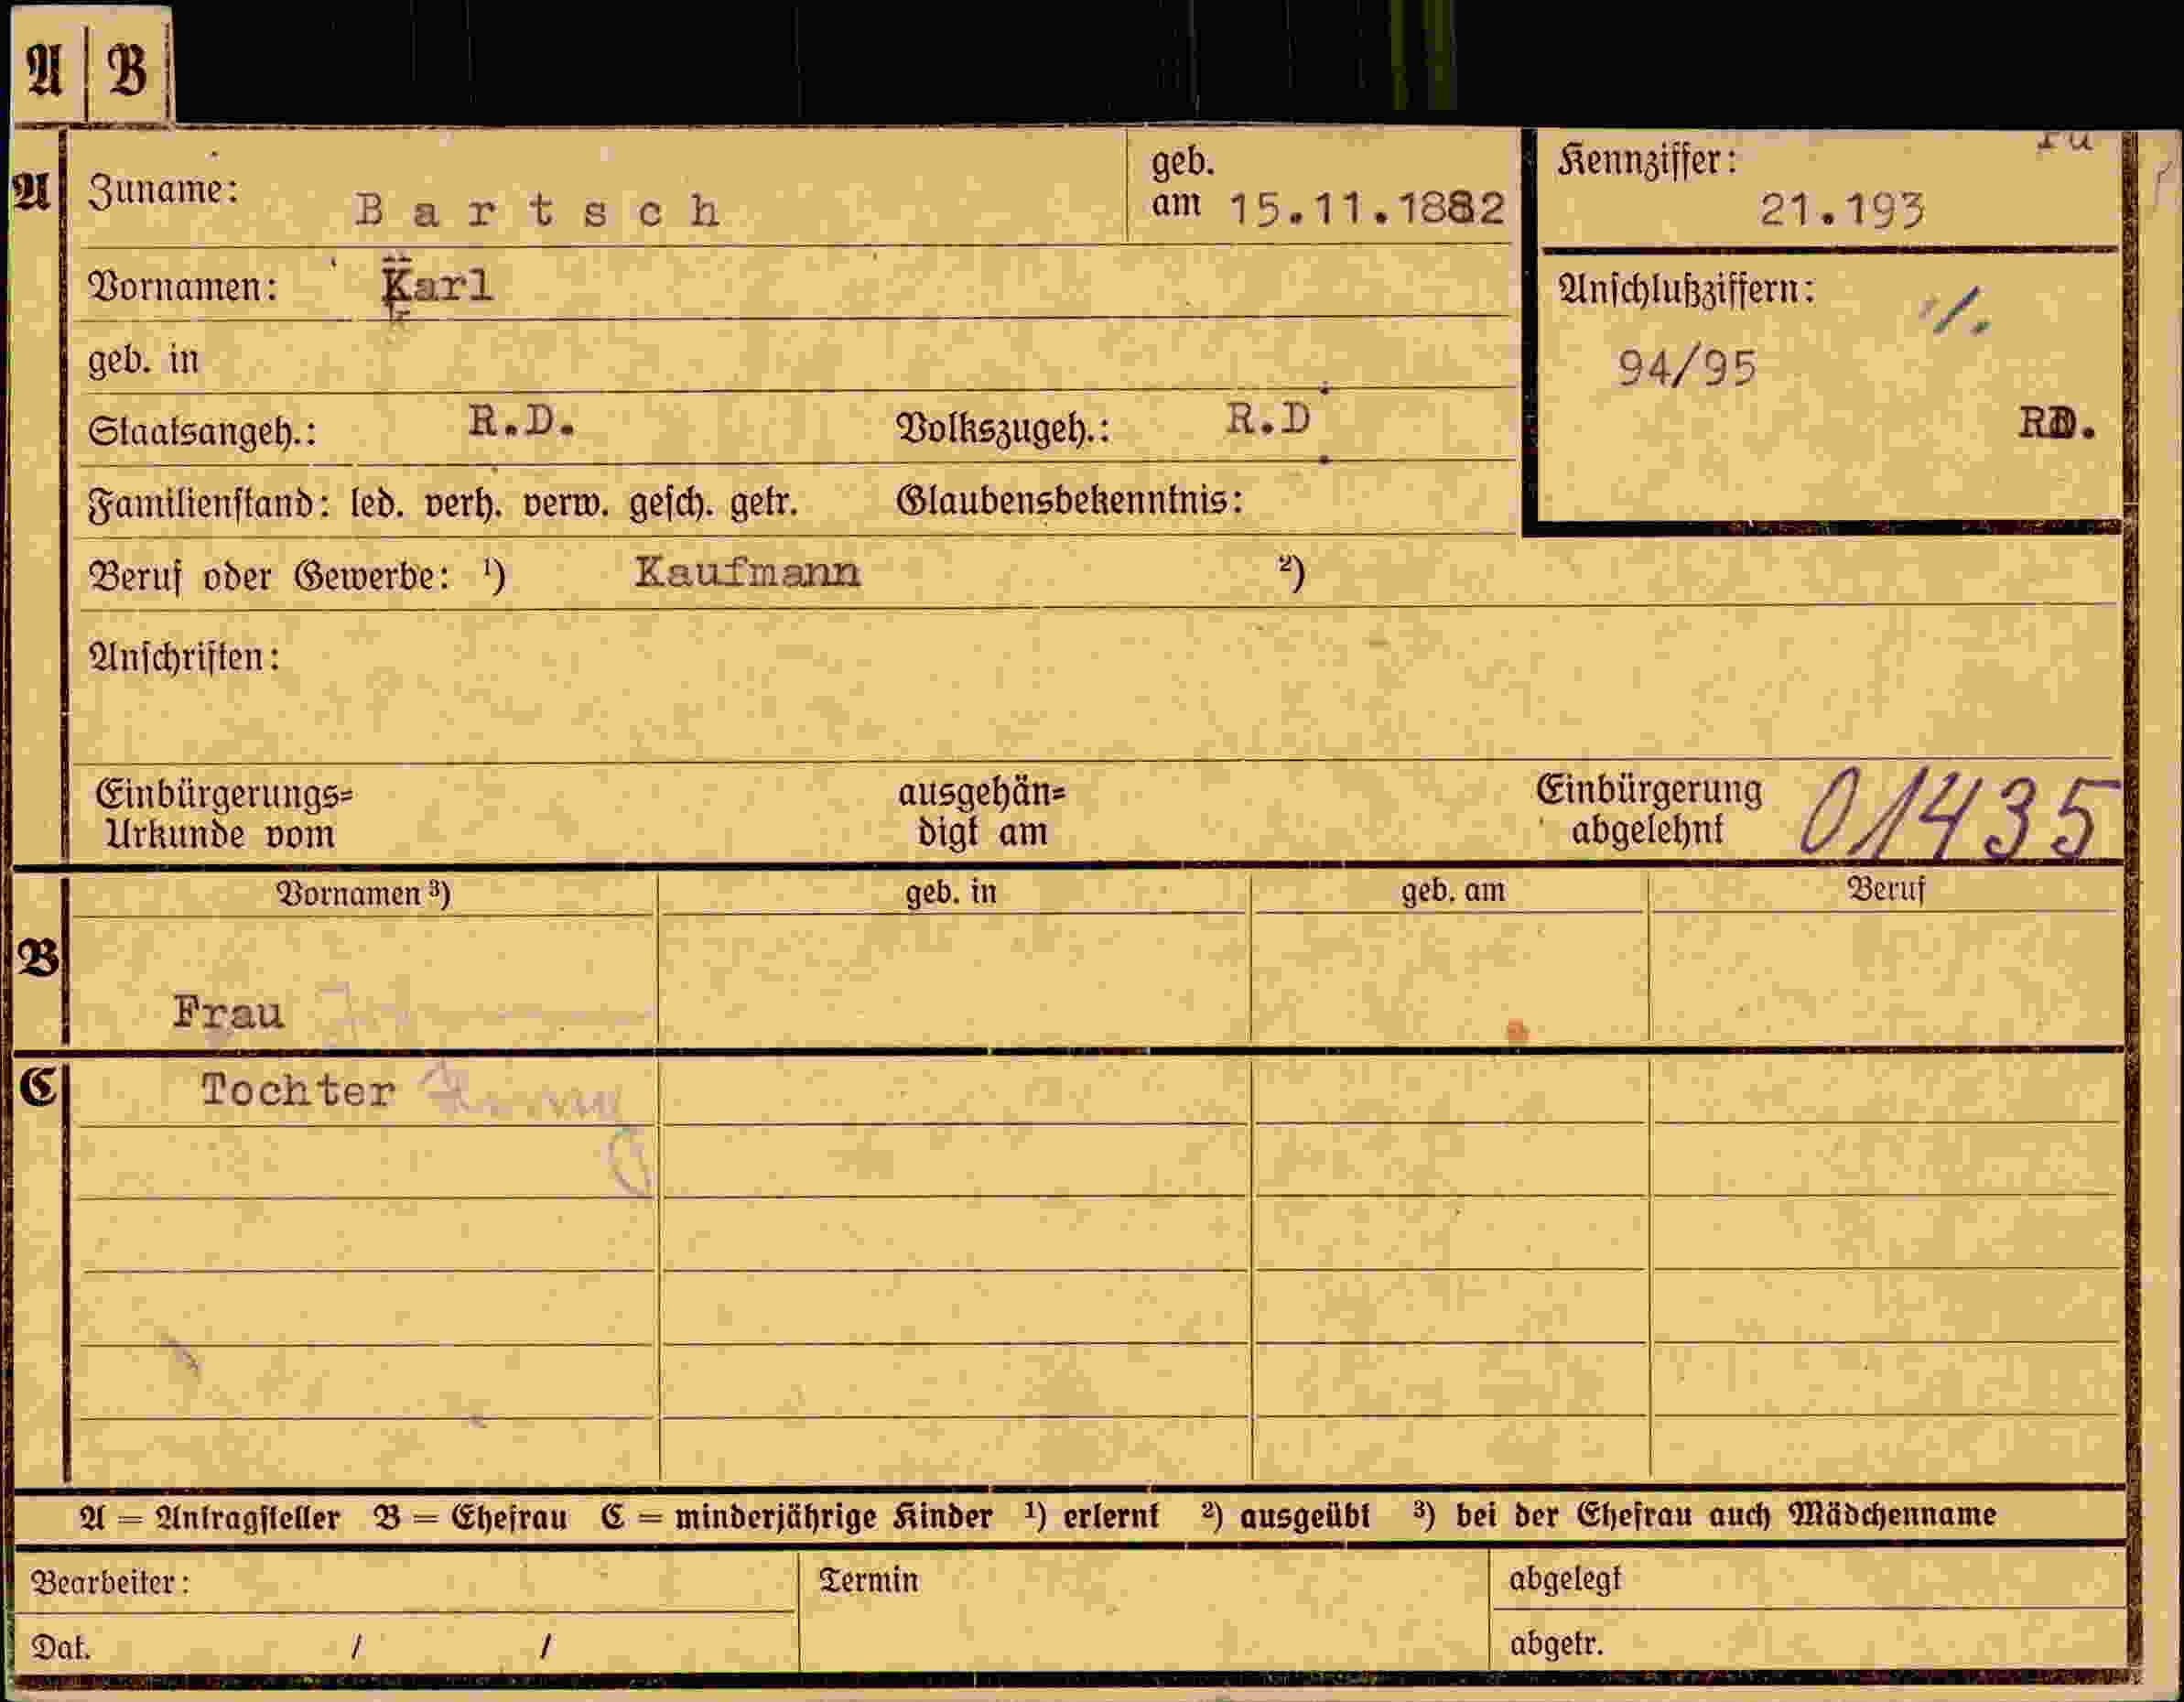 A B
A Zuname: Bartsch geb. am 15.11.1882 Kennziffer: 21.193
Vornamen: Karl
geb. in
Anschlußziffern: ./.
94/95
Staatsangeh.: R.D. Volkszugeh.: R.D. RD.
Familienstand: led. verh. verw. gesch. getr. Glaubensbekenntnis:
Beruf oder Gewerbe: ¹) Kaufmann ²)
Anschriften:
Einbürgerungs= ausgehän= Einbürgerung 01435
Urkunde vom digt am abgelehnt
Vornamen ³) geb. in geb. am Beruf
B
Frau
C Tochter
A = Antragsteller B = Ehefrau C = minderjährige Kinder ¹) erlernt ²) ausgeübt ³) bei der Ehefrau auch Mädchenname
Bearbeiter: Termin abgelegt
Dat. / / abgetr.